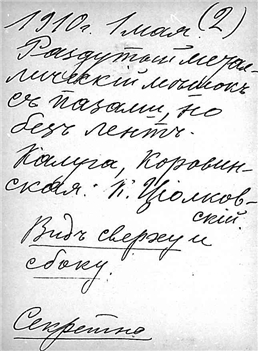 1910 г. 1 мая. (2)
Раздутый метал-
лическій мѣшокъ
съ пазами, но
безъ лентъ.
Калуга, Коровин-
ская. К. Ціолков-
скій.
Видъ сверху и
сбоку.
Секретно